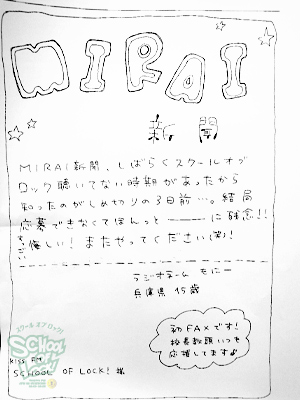 MIRAI
新聞
MIRAI新聞、しばらくスクールオブ
ロック聴いてない時期があったから
知ったのがしめ切りの3日前…。結局
応募できなくてほんっと――――に残念!!
すっごい悔しい! またやってください(笑)!
ラジオネーム もにー
兵庫県 15歳
初FAXです!
校長教頭いつも
応援してます♪
スクール オブ ロック!
SCHOOL OF LOCK!
Kiss FM
SCHOOL OF LOCK! 様